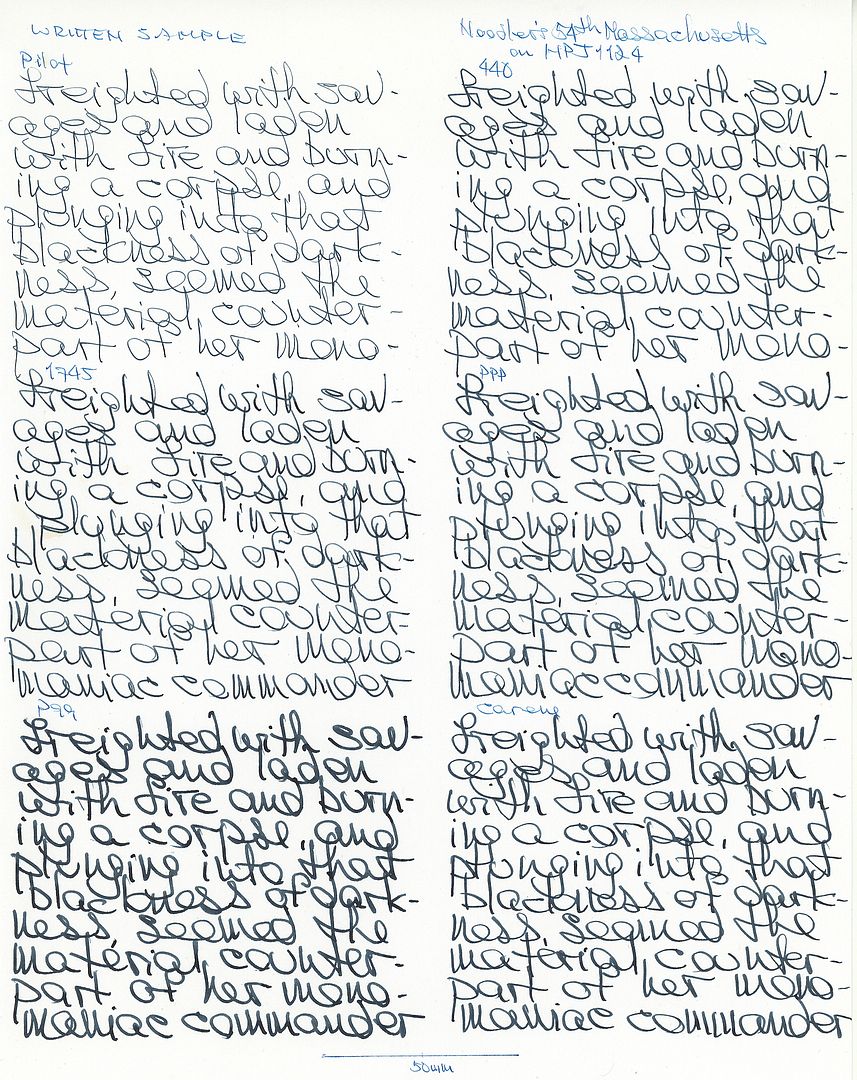 WRITTEN SAMPLE
Pilot
freighted with sav-
ages and laden
with fire and burn-
ing a corpse, and
plunging into that
blackness of dark-
ness, seemed the
material counter-
part of her mono-
1745
freighted with sav-
ages and laden
with fire and burn-
ing a corpse, and
plunging into that
blackness of dark-
ness, seemed the
material counter-
part of her mono-
maniac commander
P99
freighted with sav-
ages and laden
with fire and burn-
ing a corpse, and
plunging into that
blackness of dark-
ness, seemed the
material counter-
part of her mono-
maniac commander
Noodler's 54th Massachusetts
on HPJ1124
440
freighted with sav-
ages and laden
with fire and burn-
ing a corpse, and
plunging into that
blackness of dark-
ness, seemed the
material counter-
part of her mono-
PPP
freighted with sav-
ages and laden
with fire and burn-
ing a corpse, and
plunging into that
blackness of dark-
ness, seemed the
material counter-
part of her mono-
maniac commander
Carene
freighted with sav-
ages, and laden
with fire and burn-
ing a corpse, and
plunging into that
blackness of dark-
ness, seemed the
material counter-
part of her mono-
maniac commander
50mm